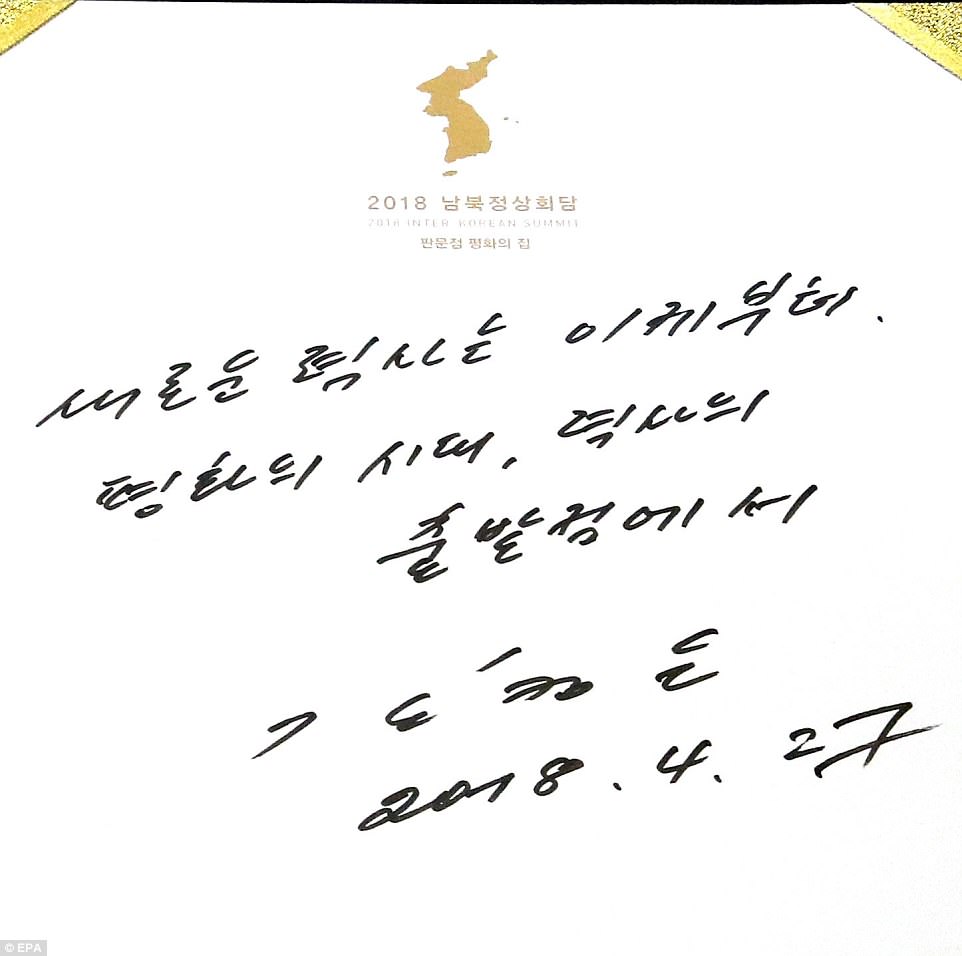 2018 남북정상회담
2018 INTER-KOREAN SUMMIT
판문점 평화의 집
새로운 력사는 이제부터.
평화의 시대, 력사의
출발점에서
김정은
2018. 4. 27
© EPA